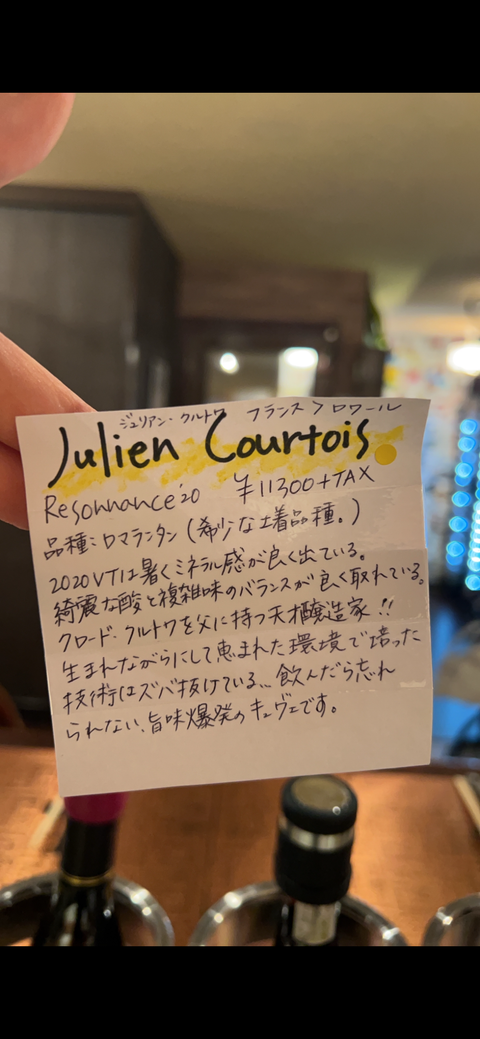 ジュリアン・クルトワ フランス>ロワール
Julien Courtois
Resonnance'20 ¥11300+TAX
品種:ロマランタン(希少な土着品種。)
2020VTは暑くミネラル感が良く出ている。
綺麗な酸と複雑味のバランスが良く取れている。
クロード・クルトワを父に持つ天才醸造家!!
生まれながらにして恵まれた環境で培った
技術はズバ抜けている… 飲んだら忘れ
られない、旨味爆発のキュヴェです。